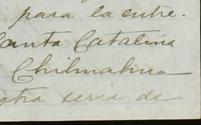 para la entre-
Santa Catalina
Chihuahua
otra seria de